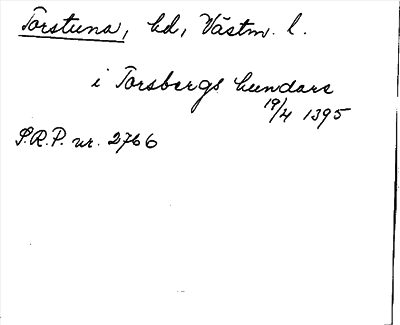 Torstuna, hd, Västm. l.
i Torsbergs hundare
19/4 1395
S.R.P. nr. 2766